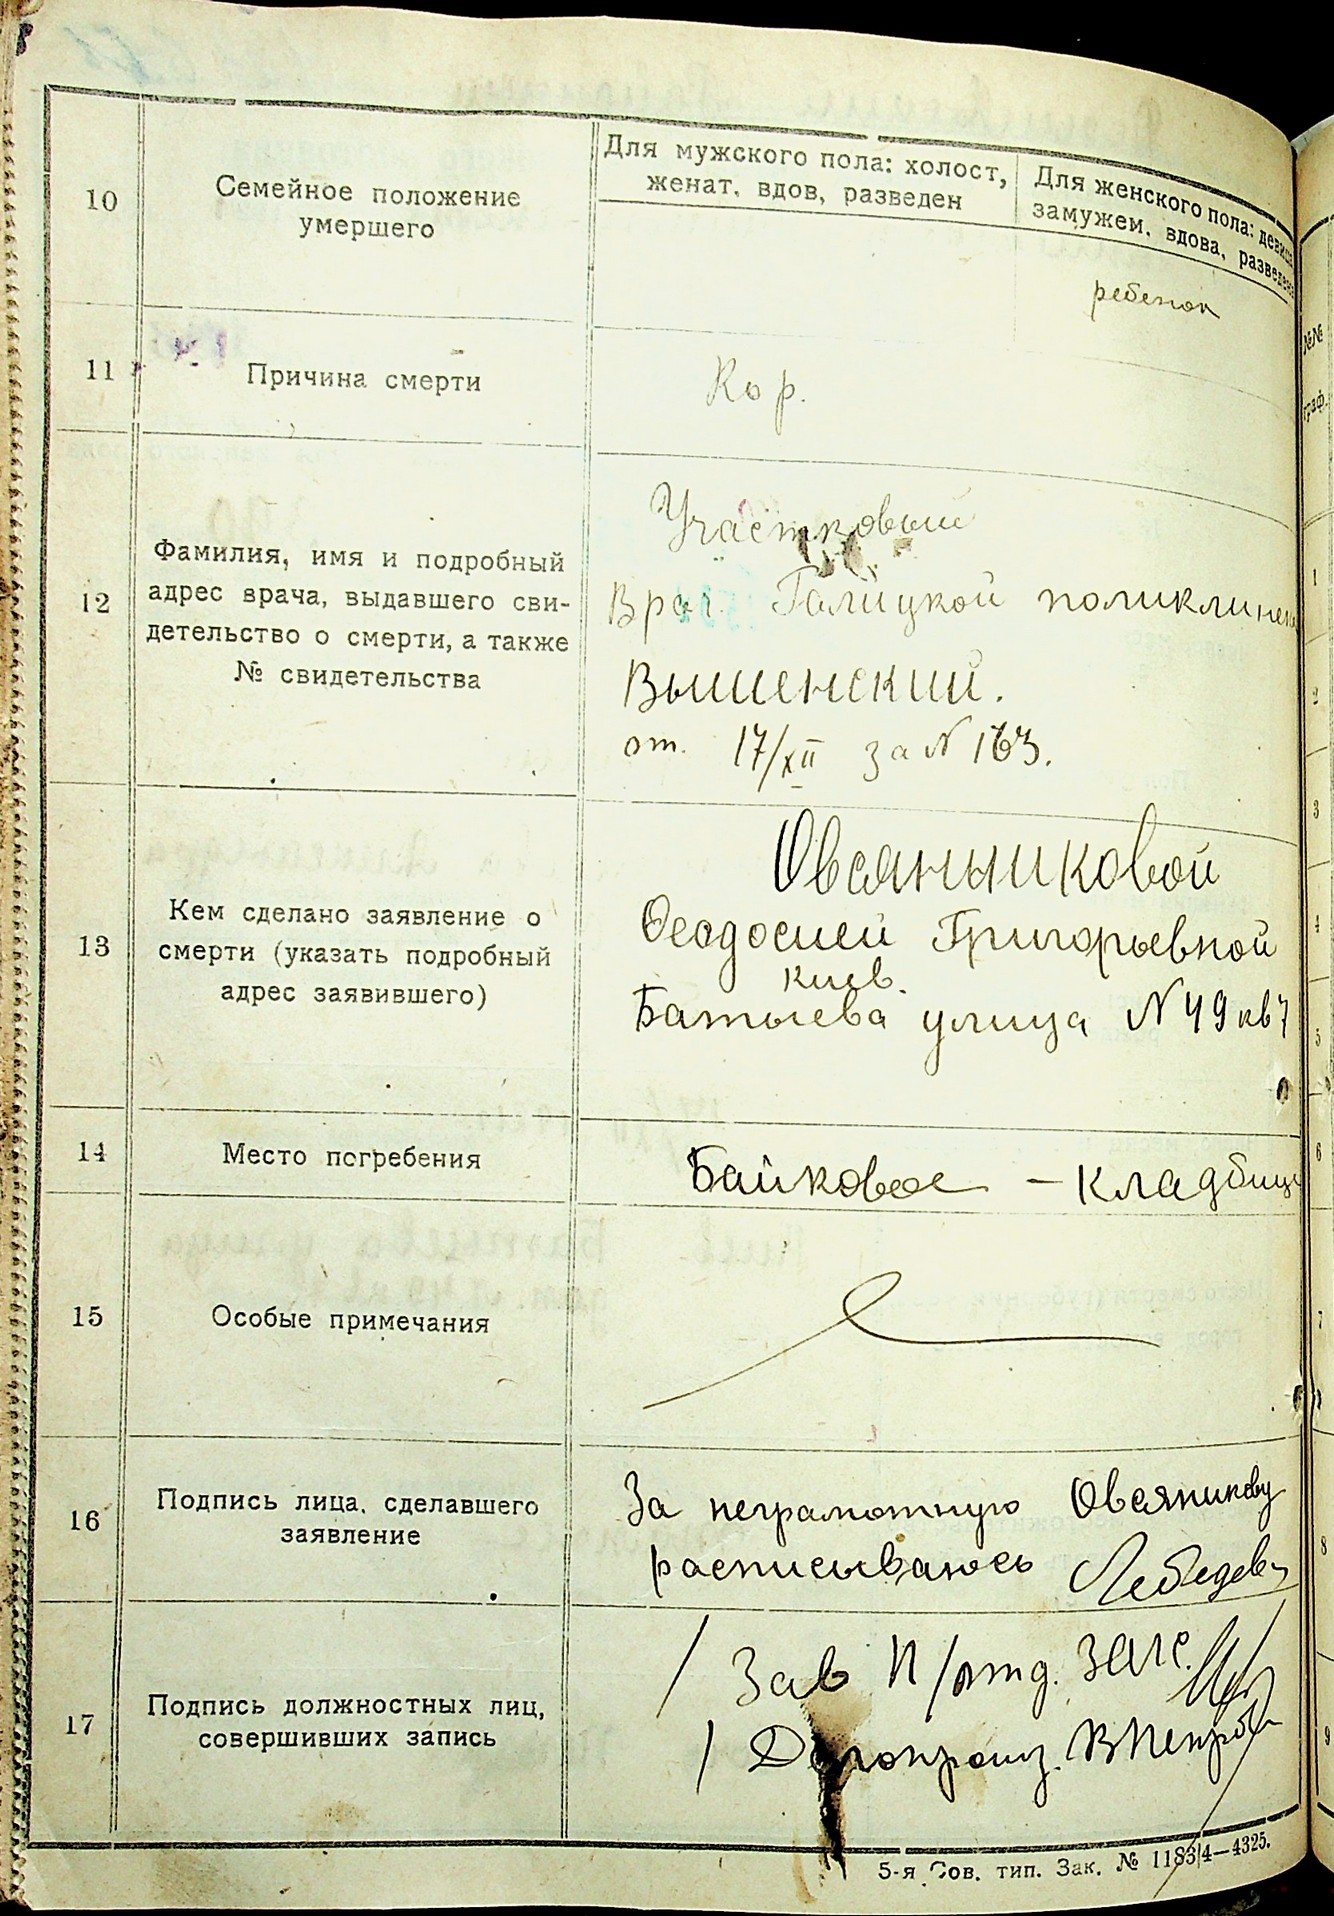 10
Семейное положение
умершего
Для мужского пола: холост,
женат, вдов, разведен
Для женского пола: девица
замужем, вдова, разведена
ребенок
11
Причина смерти
Кор.
12
Фамилия, имя и подробный
адрес врача, выдавшего сви-
детельство о смерти, а также
№ свидетельства
Участковый
Врач Галицкой поликлинеки
Вышенский.
от. 17/XII за N 163.
13
Кем сделано заявление о
смерти (указать подробный
адрес заявившего)
Овсянниковой
Феодосией Григорьевной
Киев.
Батыева улица N 49 кв 7
14
Место погребения
Байковое — кладбище
15
Особые примечания
16
Подпись лица, сделавшего
заявление
За неграмотную Овсяникову
расписываюсь Лебедев
17
Подпись должностных лиц,
совершивших запись
Зав п/отд. ЗАГС
Делопроиз.
5-я Сов. тип. Зак. № 1183/4—4325.
№№
граф.
1
2
3
4
5
6
7
8
9